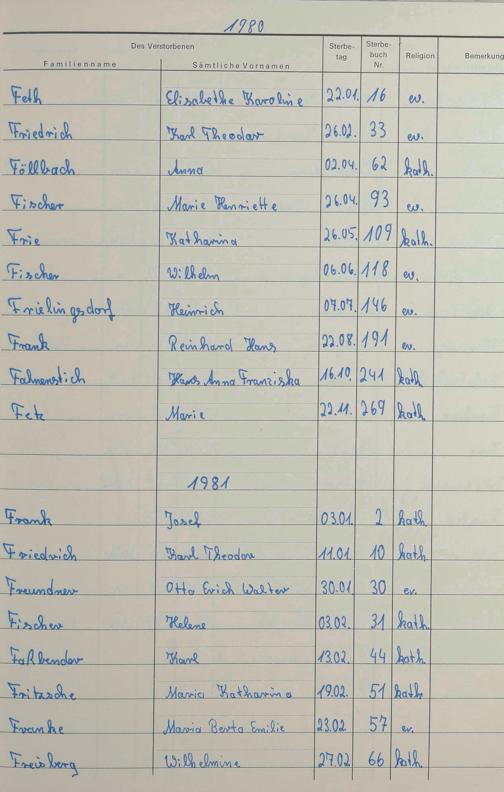 1980
Des Verstorbenen Sterbe- Sterbe- Religion Bemerkung
Familienname Sämtliche Vornamen tag buch Nr.
Feth Elisabethe Karoline 22.01. 16 ev.
Friedrich Karl Theodor 26.02. 33 ev.
Föllbach Anna 02.04. 62 kath.
Fischer Marie Henriette 26.04. 93 ev.
Frie Katharina 26.05. 109 kath.
Fischer Wilhelm 06.06. 118 ev.
Frielingsdorf Heinrich 07.07. 146 ev.
Frank Reinhard Hans 22.08. 191 ev.
Fahnenstich Anna Franziska 16.10. 241 kath
Fetz Marie 22.11. 269 kath
1981
Frank Josef 03.01. 2 kath.
Friedrich Karl Theodor 11.01. 10 kath.
Freundner Otto Erich Walter 30.01. 30 ev.
Fischer Helene 03.02. 31 kath.
Faßbender Karl 13.02. 44 kath.
Fritzsche Maria Katharina 19.02. 51 kath
Franke Maria Berta Emilie 23.02 57 ev.
Freisberg Wilhelmine 27.02 66 kath.